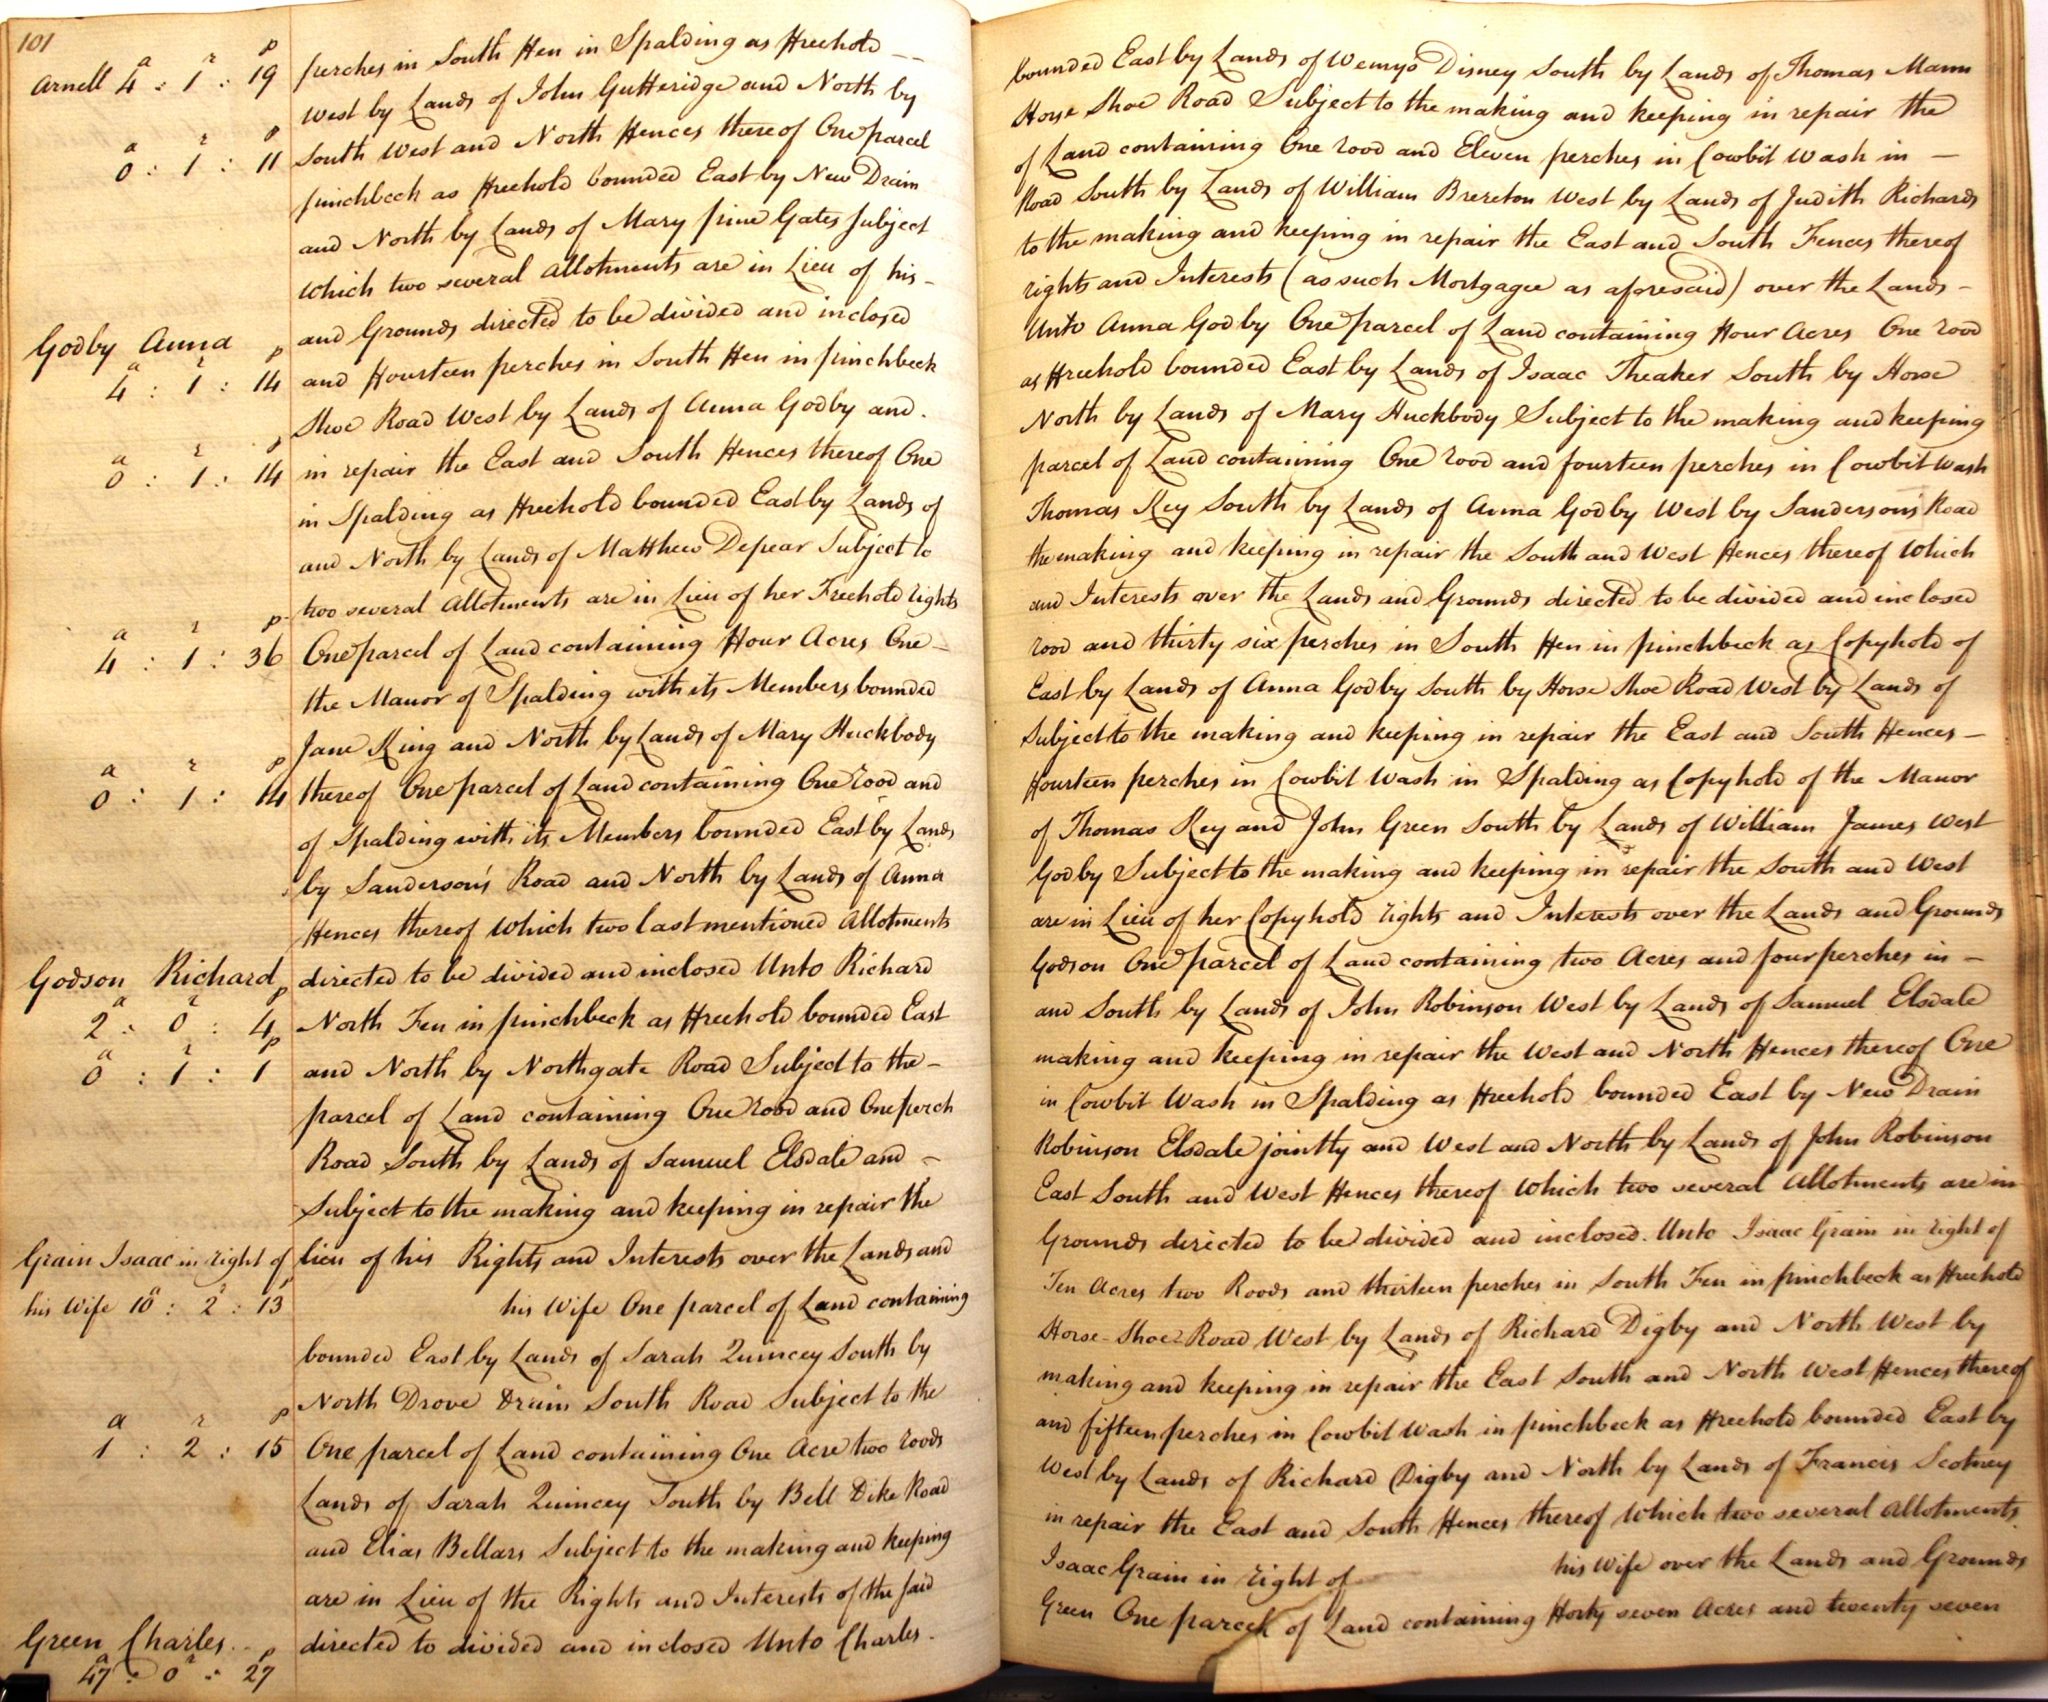 101
a r p
Arnell 4 : 1 : 19
perches in South Fen in Spalding as Freehold -- bounded East by Lands of Wemys Disney South by Lands of Thomas Mann
West by Lands of John Gutteridge and North by Horse Shoe Road Subject to the making and keeping in repair the
a r p
0 : 1 : 11
South West and North Fences thereof One parcel of Land containing One rood and Eleven perches in Cowbit Wash in —
pinchbeck as Freehold bounded East by New Drain Road South by Lands of William Brereton West by Lands of Judith Richards
and North by Lands of Mary pine Gates Subject to the making and keeping in repair the East and South Fences thereof
Which two several Allotments are in Lieu of his - rights and Interests (as such Mortgagee as aforesaid) over the Lands -
and Grounds directed to be divided and inclosed Unto Anna Godby One parcel of Land containing Four Acres One rood
Godby Anna
a r p
4 : 1 : 14
and Fourteen perches in South Fen in pinchbeck as Freehold bounded East by Lands of Isaac Theaker South by Horse
Shoe Road West by Lands of Anna Godby and. North by Lands of Mary Huckbody Subject to the making and keeping
a r p
0 : 1 : 14
in repair the East and South Fences thereof One parcel of Land containing One rood and fourteen perches in Cowbit Wash
in Spalding as Freehold bounded East by Lands of Thomas Key South by Lands of Anna Godby West by Sanderson's Road
and North by Lands of Matthew Depear Subject to the making and keeping in repair the South and West Fences thereof Which
two several Allotments are in Lieu of her Freehold rights and Interests over the Lands and Grounds directed to be divided and inclosed
a r p
4 : 1 : 36
One parcel of Land containing Four Acres One - rood and thirty six perches in South Fen in pinchbeck as Copyhold of
the Manor of Spalding with its Members bounded East by Lands of Anna Godby South by Horse Shoe Road West by Lands of
Jane King and North by Lands of Mary Huckbody Subject to the making and keeping in repair the East and South Fences —
a r p
0 : 1 : 14
thereof One parcel of Land containing One rood and Fourteen perches in Cowbit Wash in Spalding as Copyhold of the Manor
of Spalding with its Members bounded East by Lands of Thomas Key and John Green South by Lands of William James West
by Sanderson's Road and North by Lands of Anna Godby Subject to the making and keeping in repair the South and West
Fences thereof Which two last mentioned Allotments are in Lieu of her Copyhold rights and Interests over the Lands and Grounds
Godson Richard
directed to be divided and inclosed Unto Richard Godson One parcel of Land containing two Acres and four perches in —
a r p
2 : 0 : 4
North Fen in pinchbeck as Freehold bounded East and South by Lands of John Robinson West by Lands of Samuel Elsdale
a r p
0 : 1 : 1
and North by Northgate Road Subject to the - making and keeping in repair the West and North Fences thereof One
parcel of Land containing One rood and One perch in Cowbit Wash in Spalding as Freehold bounded East by New Drain
Road South by Lands of Samuel Elsdale and - Robinson Elsdale jointly and West and North by Lands of John Robinson
Subject to the making and keeping in repair the East South and West Fences thereof Which two several Allotments are in
Grain Isaac in right of
lieu of his Rights and Interests over the Lands and Grounds directed to be divided and inclosed. Unto Isaac Grain in right of
a r p
his Wife 10 : 2 : 13
his Wife One parcel of Land containing Ten Acres two Roods and thirteen perches in South Fen in pinchbeck as Freehold
bounded East by Lands of Sarah Quincey South by Horse-Shoe Road West by Lands of Richard Digby and North West by
North Drove Drain South Road Subject to the making and keeping in repair the East South and North West Fences thereof
a r p
1 : 2 : 15
One parcel of Land containing One Acre two roods and fifteen perches in Cowbit Wash in pinchbeck as Freehold bounded East by
Lands of Sarah Quincey South by Bell Dike Road West by Lands of Richard Digby and North by Lands of Francis Scotney
and Elias Bellars Subject to the making and keeping in repair the East and South Fences thereof Which two several Allotments
are in Lieu of the Rights and Interests of the said Isaac Grain in right of his Wife over the Lands and Grounds
Green Charles
directed to divided and inclosed Unto Charles. Green One parcel of Land containing Forty seven Acres and twenty seven
a r p
47 : 0 : 27